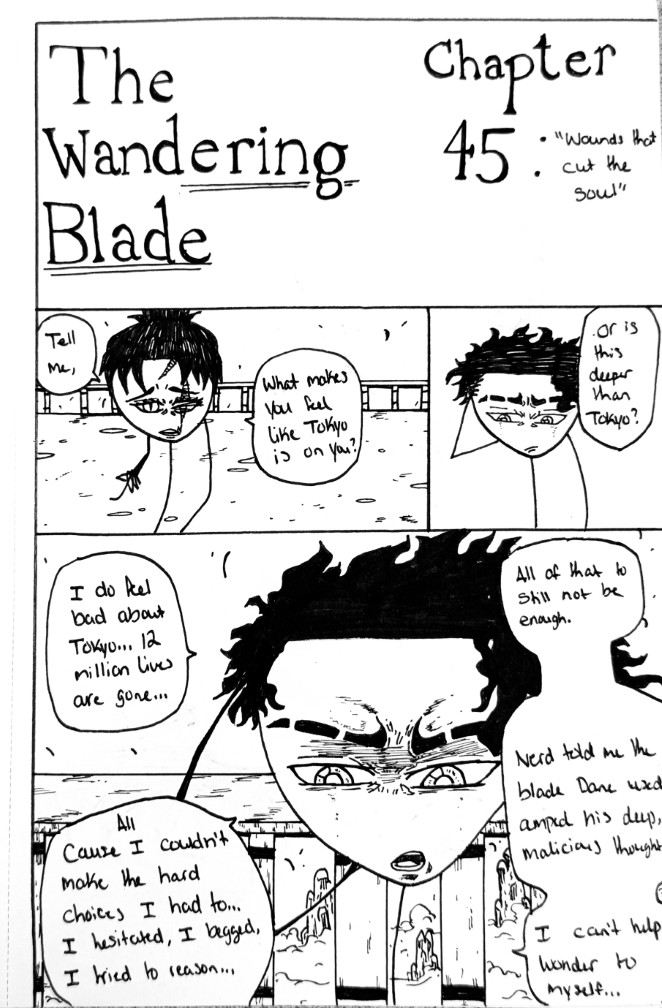 The
Wandering
Blade
Chapter
45 : "Wounds that
cut the
soul"
Tell
me,
What makes
you feel
like Tokyo
is on you?
.Or is
this
deeper
than
Tokyo?
I do feel
bad about
Tokyo... 12
million lives
are gone...
All
Cause I couldn't
make the hard
choices I had to...
I hesitated, I begged,
I tried to reason...
All of that to
still not be
enough.
Nerd told me the
blade Dane used
amped his deep,
malicious thought
I can't help
wonder to
myself...